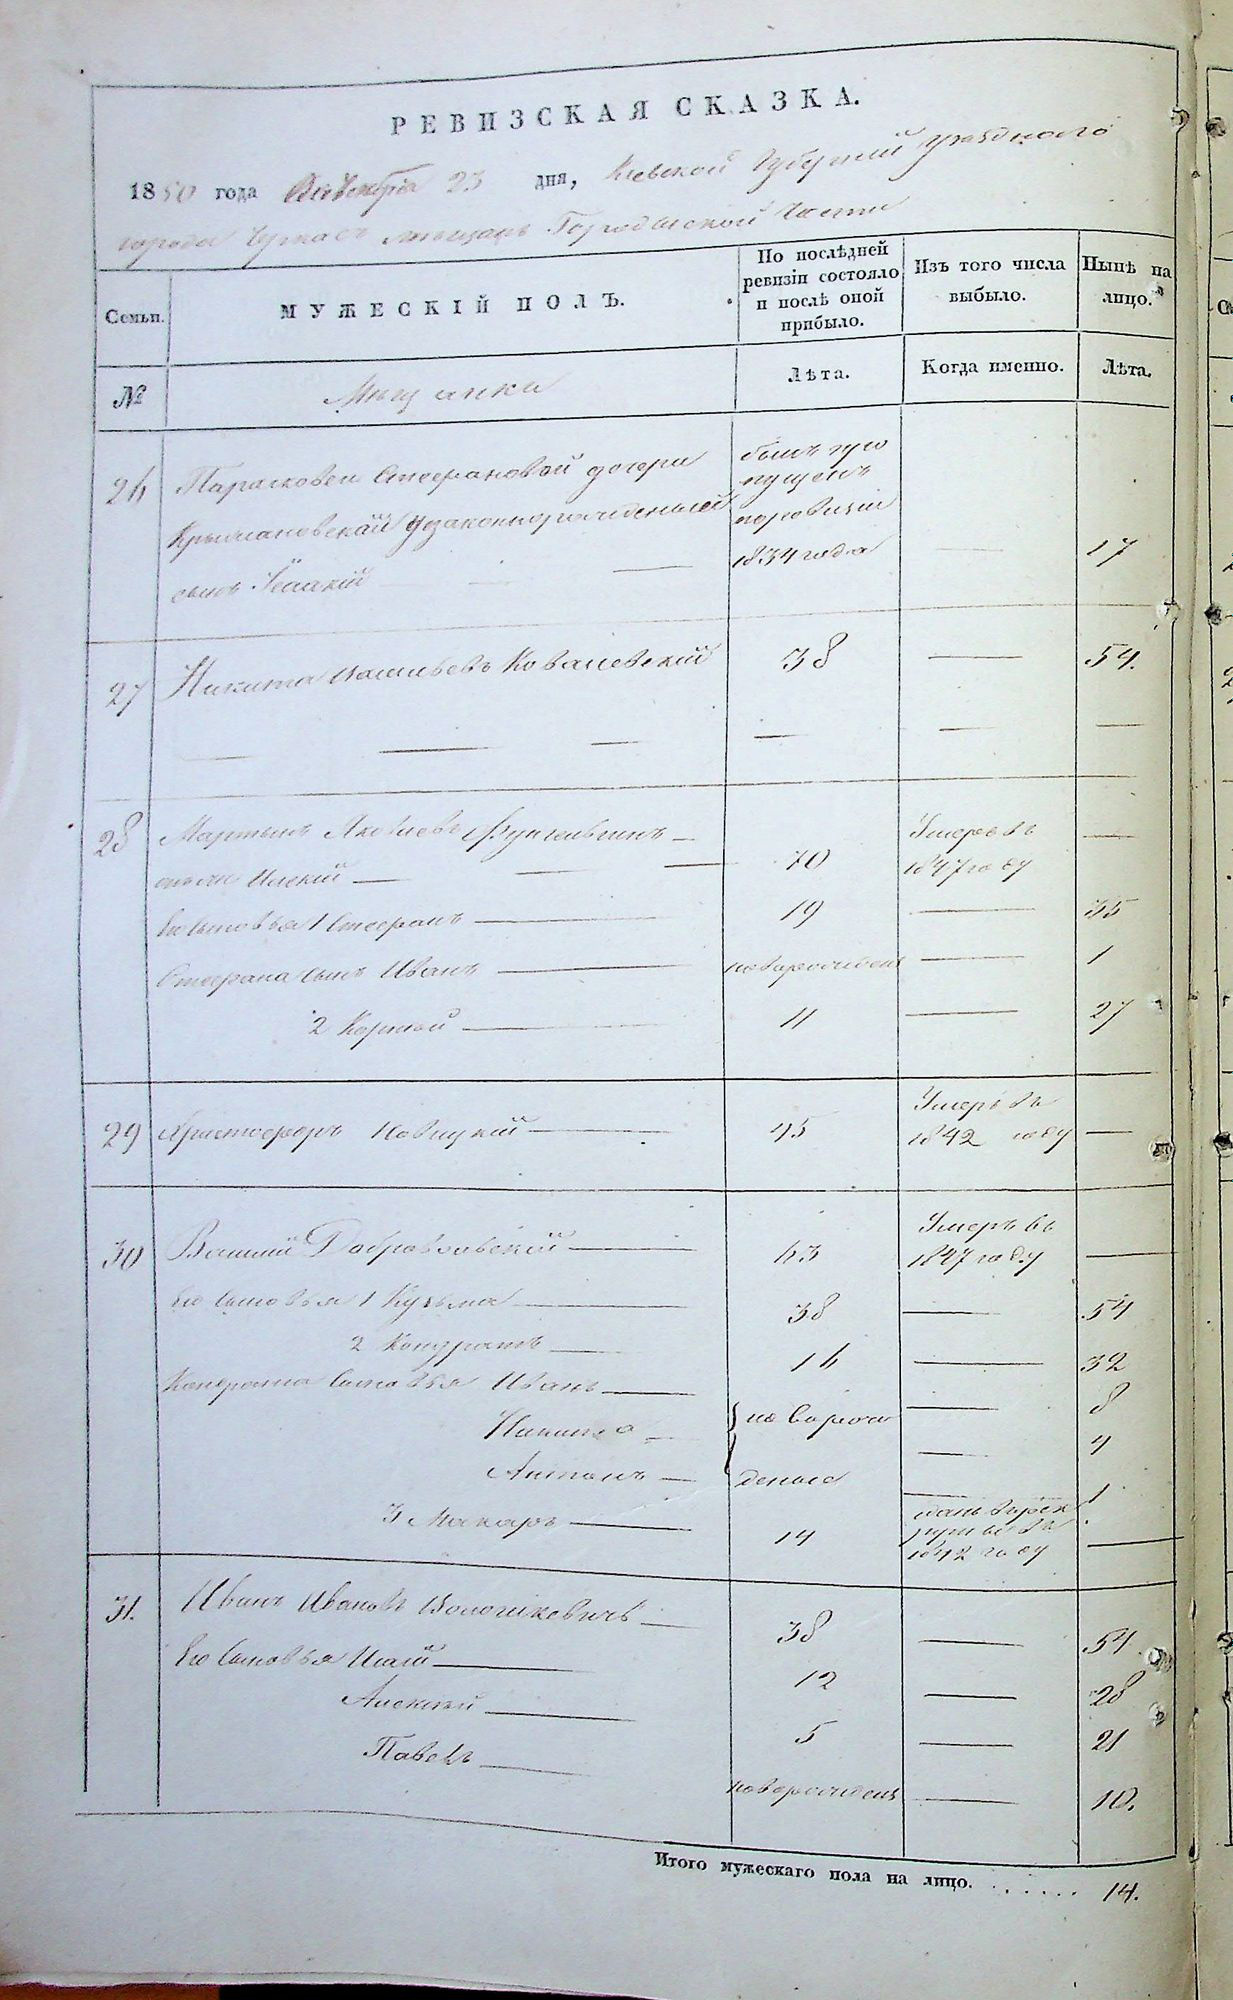 РЕВИЗСКАЯ СКАЗКА.
1850 года Октября 23 дня, Киевской Губернии уезднаго
города Черкас мещан Городиской части
Семьи.
МУЖЕСКІЙ ПОЛЪ.
По послѣдней
ревизіи состояло
и послѣ оной
прибыло.
Изъ того числа
выбыло.
Нынѣ на
лицо.
№
Мещанки
Лѣта.
Когда именно.
Лѣта.
26 Парасковеи Стефановой дочери былъ про
пущенъ
Крыжановской узаконнорожденный поревизіи
сынъ — — 1834 года — 17
27 Никита Васильевъ Ковалевскій 38 — 54.
— — — — — —
28 Мартынъ Яковлевъ — Умеръ въ —
— — — 70 1847 году
Его сыновья 1 Стефанъ — 19 — 35
Стефана сынъ Иванъ — новорожденъ — 1
2 Корней — 11 — 27
29 Христофоръ Новицкій — 45 Умеръ въ
1842 году —
30 Василий Добровловскій — 63 Умеръ въ
1847 году —
Его сыновья 1 Кузьма — 38 — 54
2 Кондратъ — 16 — 32
Кондрата сыновья Иванъ — — 8
Никита — новорож — 4
Антонъ — деные — 1
3 Макаръ — 14 зданъ въ рек
руты въ
1842 году —
31. Иванъ Ивановъ — 38 — 54.
Его сыновья — 12 — 28
Алексѣй — 5 — 21
Павелъ — новорожденъ — 10.
Итого мужескаго пола на лицо. . . . . . . 14.